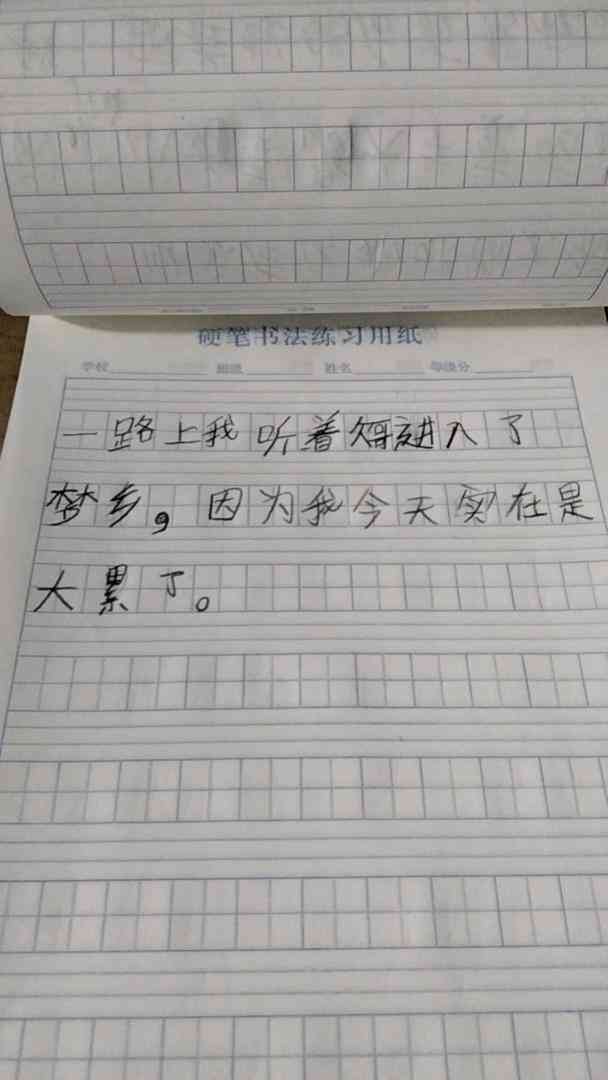 硬笔书法练习用纸
学校 班级 姓名 等级分
一路上我听着进入了
梦乡，因为我今天实在是
大累了。